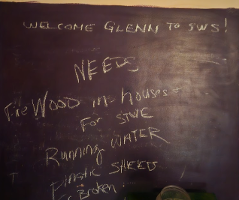 WELCOME GLENN TO SWS!
NEEDS
FireWOOD in houses
For STOVE
Running WATER
Plastic SHEETS
Broken